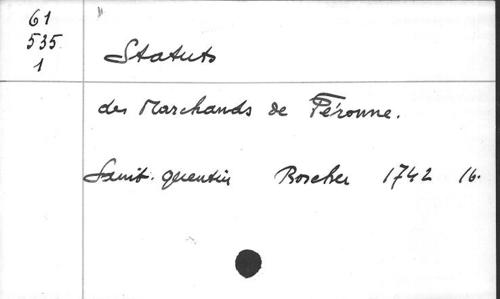 61
535
1
Statuts
des Marchands de Péronne.
Saint-Quentin Boscher 1742 16.